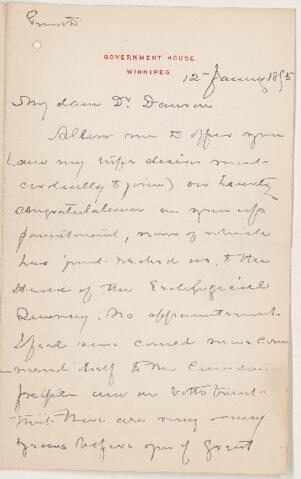 Private
GOVERNMENT HOUSE,
WINNIPEG.
12 January 1895
My dear Dr. Dawson
Allow me to offer you
(and my wife desires most
cordially to join) our hearty
congratulations on your ap
pointment, news of which
has just reached us, to the
Head of the Geological
Survey. No appointment
I feel sure could more com
mend itself to the Canadian
people and we both trust
that there are very many
years before you of great